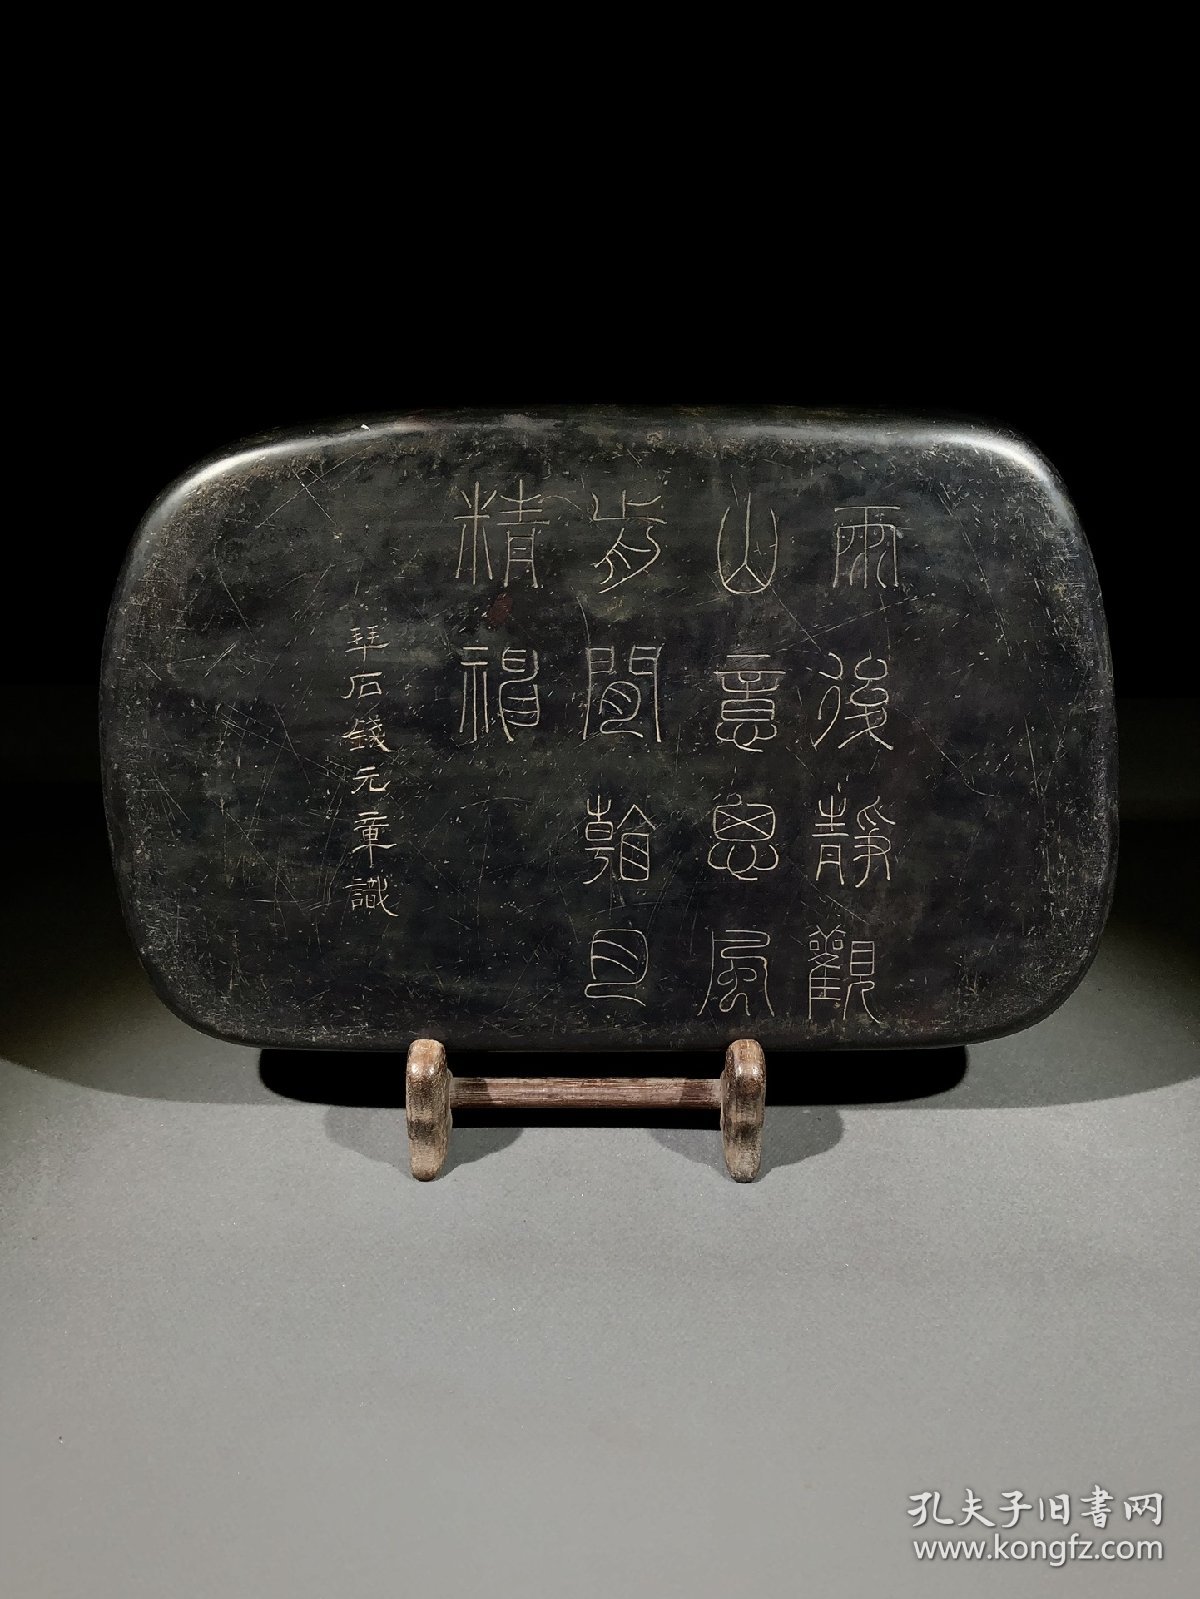 雨後靜觀
山意思風
前閒看月
精神
拜石錢元章識
孔夫子旧書网
www.kongfz.com